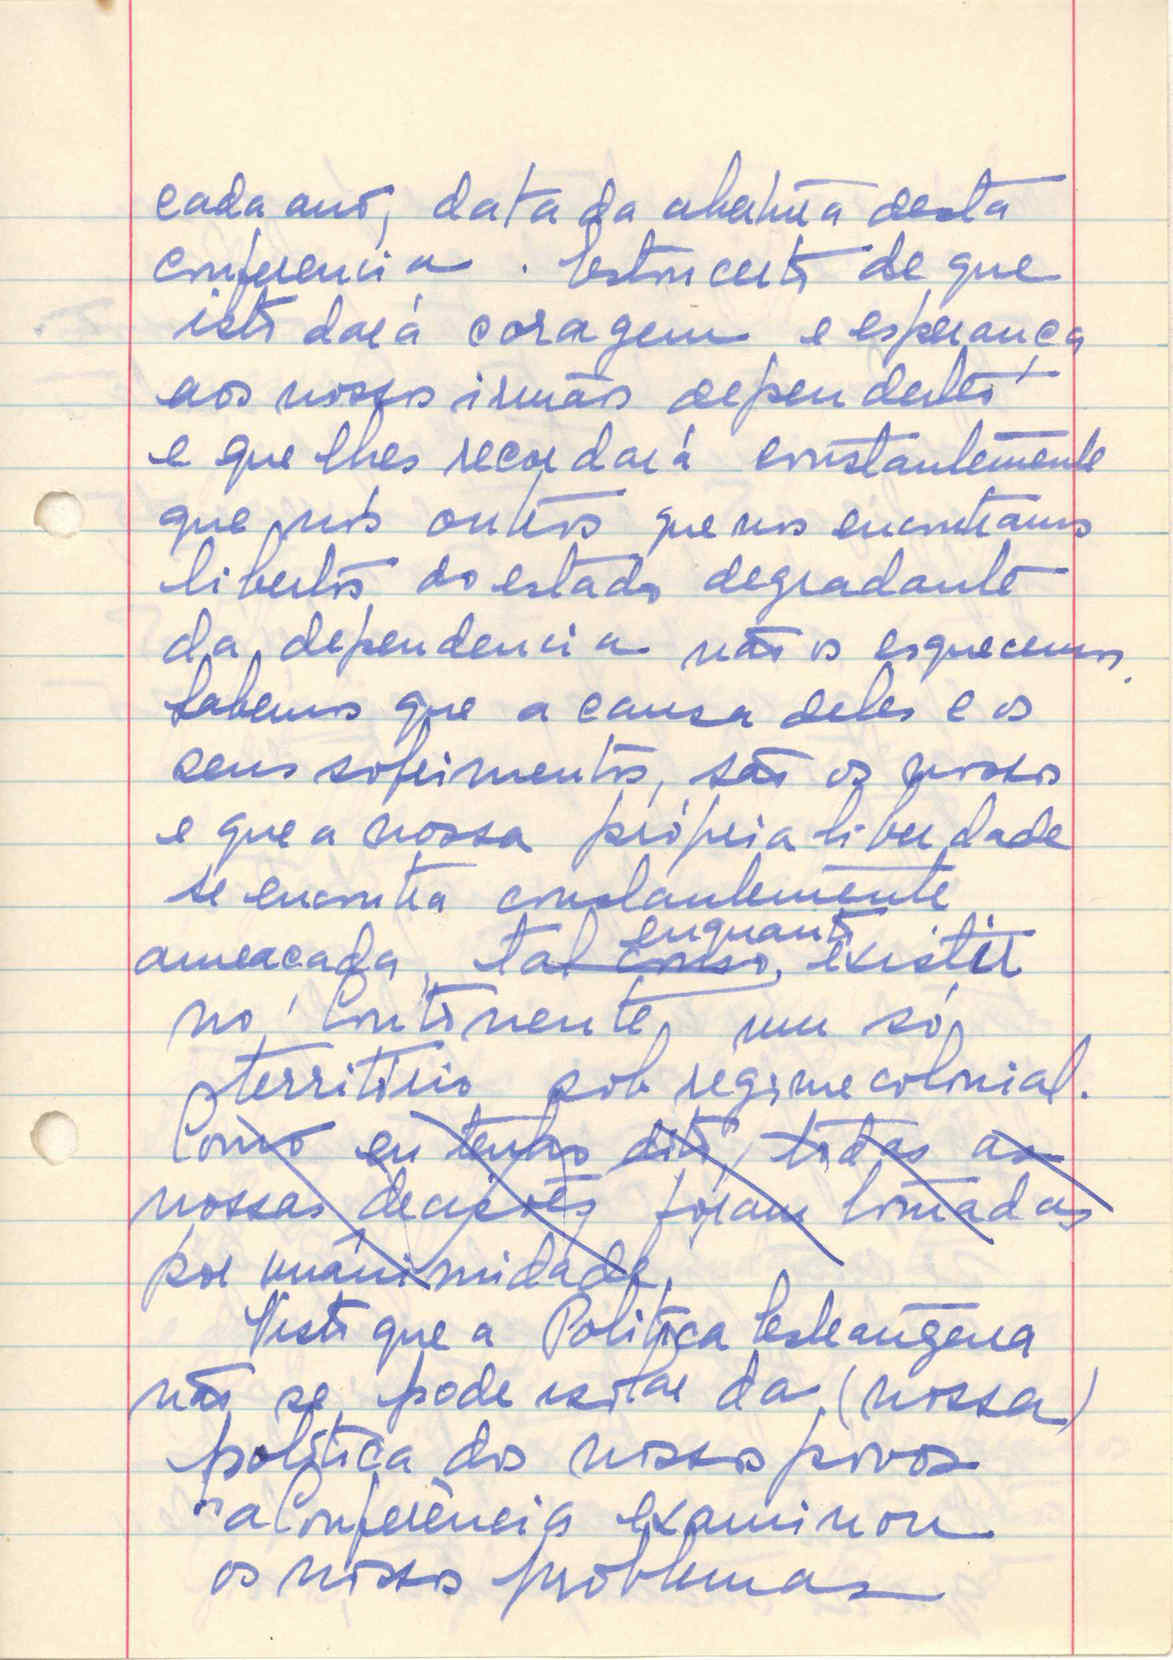 cada ano, data da abertura desta
conferencia. Estou certo de que
isto dará coragem e esperança
aos nossos irmãos dependentes
e que lhes recordará constantemente
que nós outros que nos encontramos
libertos do estado degradante
da dependencia não os esquecemos.
Sabemos que a causa deles e os
seus sofrimentos, são os nossos
e que a nossa própria liberdade
se encontra constantemente
enquanto
ameaçada, tal como, existir
no Continente, um só
território sob regime colonial.
Como eu tenho dito, todas as
nossas decisões foram tomadas
por unânimidade.
Visto que a Politica Estrangeira
não se pode isolar da (nossa)
politica dos nossos povos
a Conferência examinou
os nossos problemas